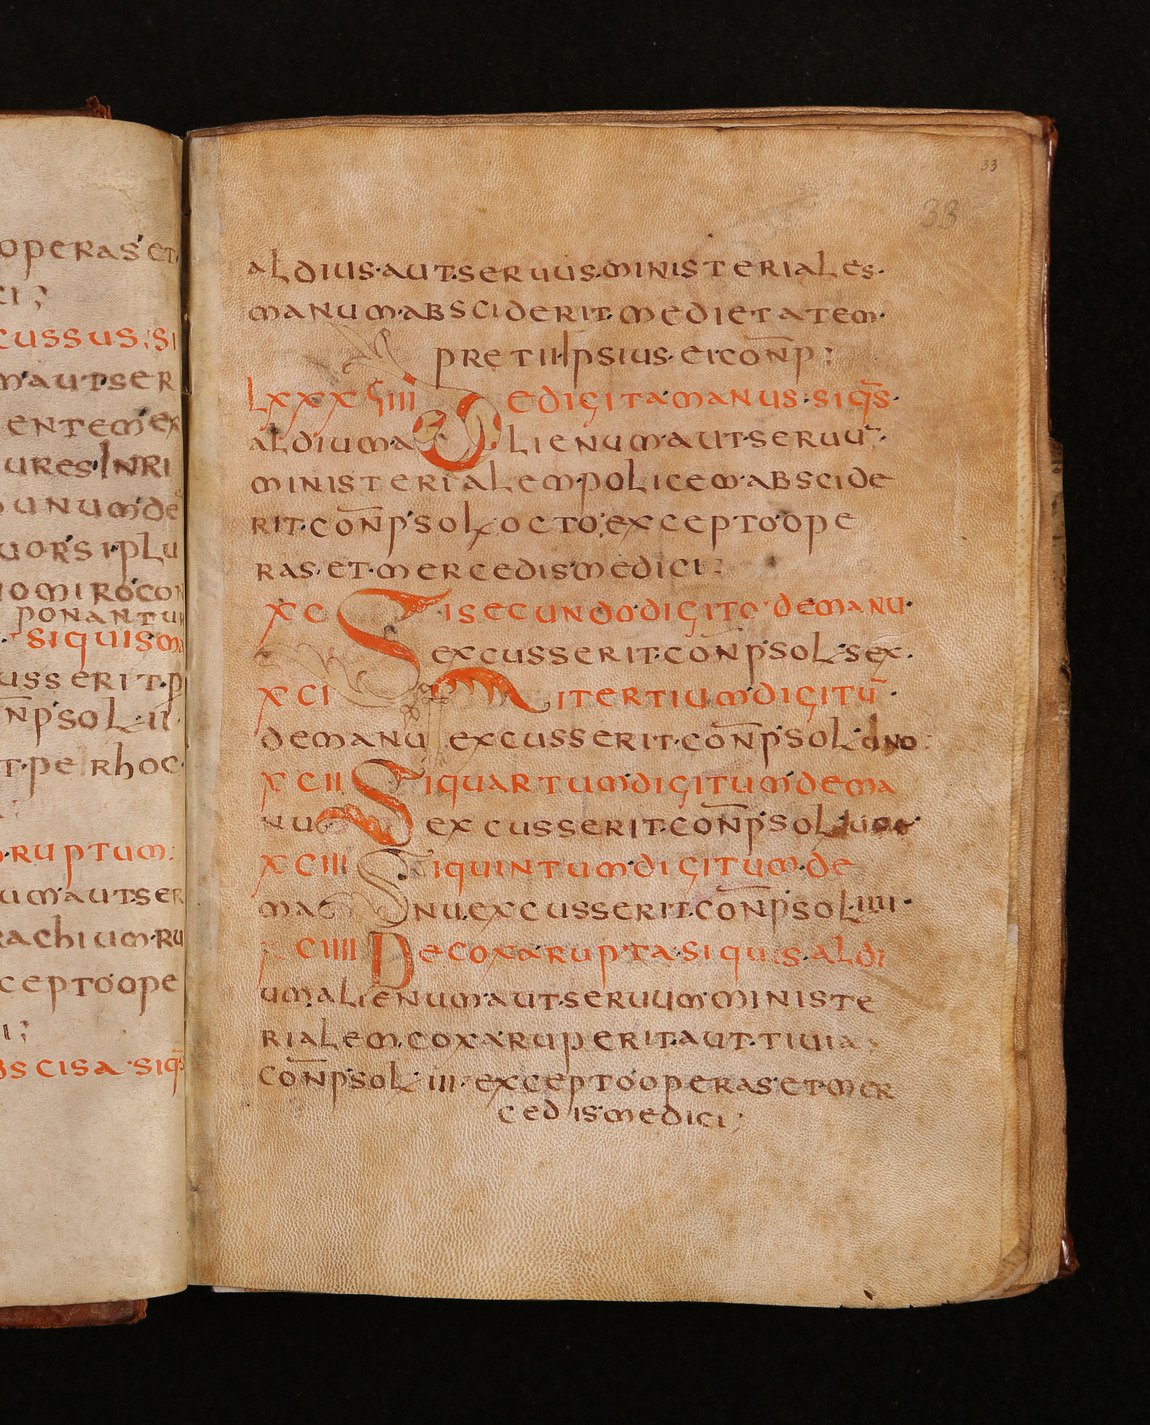 operas et
ci;
cussus; si
m aut ser
entem ex
ures Inri
unum de
uors iplu
nomiro con
ponantu
siquis m
usserit p
np sol ii
t per hoc
ruptum;
um aut ser
rachium ru
cepto ope
i;
bscisa siqs
33
33
aldius·aut·seruus·ministeriales·
manum·absciderit·medietatem·
pretii·ipsius·ei conp;
LXXXVIIII De digita manus·siqs·
aldium alienum·aut·seruū·
ministerialem·policem·abscide
rit·conp·sol·octo·excepto·ope
ras·et·mercedis·medici;
XC Si secundo·digito·de manu·
excusserit·conp·sol·sex·
XCI Si tertium·digitū·
de manu excusserit·conp·sol·
XCII Si quartum·digitum·de ma
nu excusserit·conp·sol·
XCIII Si quintum·digitum·de
ma nu·excusserit·conp·sol·iiii·
XCIIII De coxa rupta·si quis·aldi
um alienum·aut·seruum·ministe
rialem·coxa ruperit·aut·tiuia·
conp·sol·iii·excepto·operas·et·mer
cedis·medici;